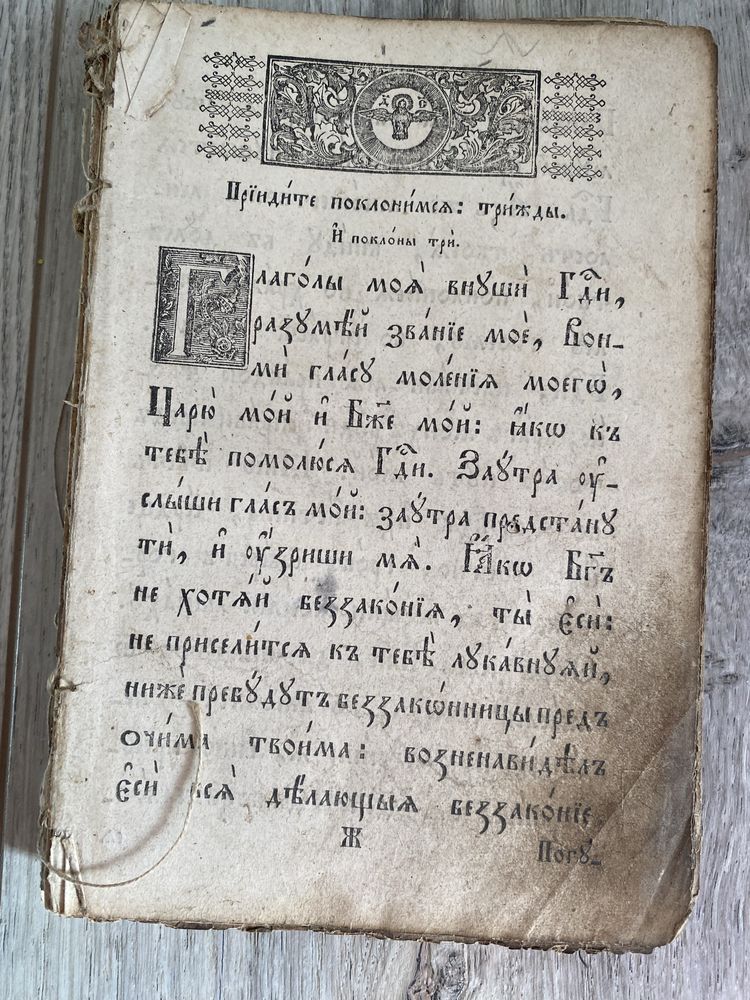 Прїиди́те поклони́мся: три́жды.
И҆ поклоны трѝ.
Глаго́лы моѧ̀ внушѝ Гдⷭ҇и,
разꙋмѣ́й зва́нїе моѐ, Вон-
мѝ гла́сꙋ моле́нїѧ моегѡ̀,
Царю̀ мо́й и҆ Бж҃е мо́й: ꙗ҆́кѡ къ
тебѣ̀ помолю́сѧ Гдⷭ҇и. Заꙋ́тра ᲂу҆-
слы́ши гла́съ мо́й: заꙋ́тра предста́нꙋ
тѝ, и҆ ᲂу҆́зриши мѧ̀. Ꙗ҆́кѡ Бг҃ъ
не хотѧ́й беззако́нїѧ, ты̀ є҆сѝ:
не присели́тсѧ къ тебѣ̀ лꙋка́внꙋѧй,
нижѐ превꙋ́дꙋтъ беззако́нницы предъ
ѻчи́ма твои́ма: возненави́дѣлъ
є҆сѝ всѧ̀ дѣ́лающыѧ беззако́нїе.
Ж Погꙋ-